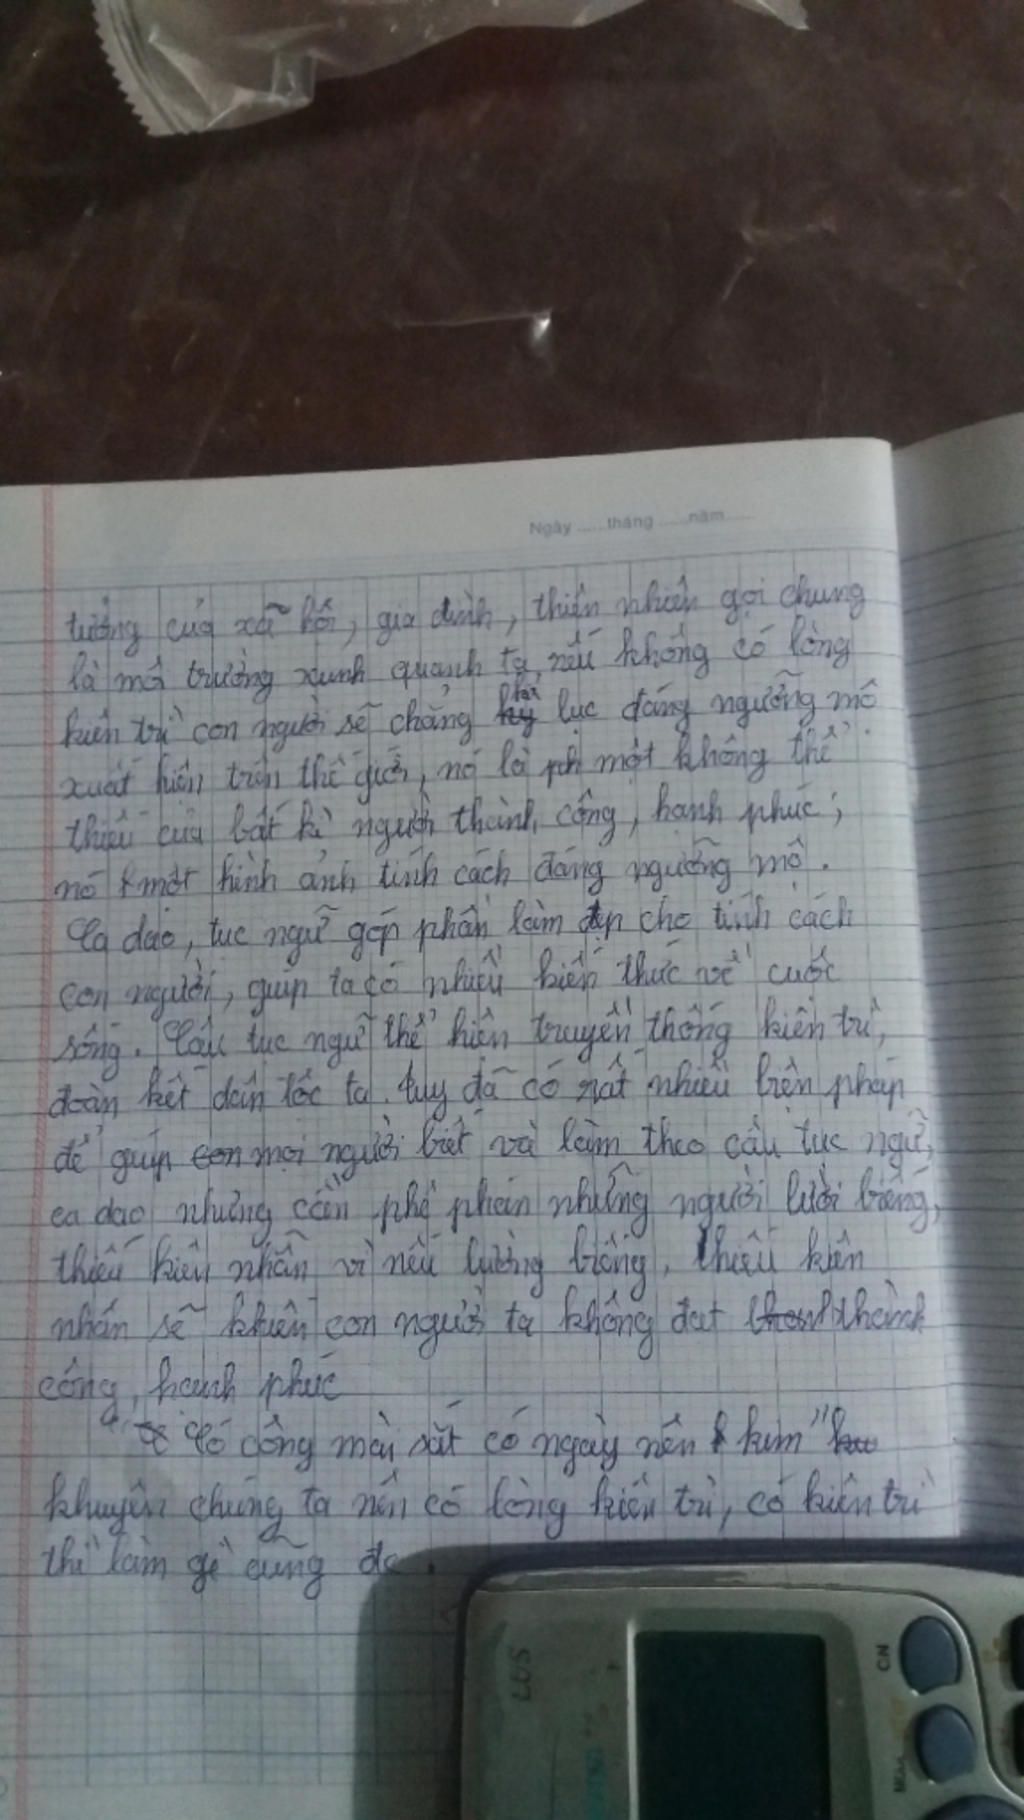 Ngày ......tháng ......năm......
tưởng của xã hội, gia đình, thiên nhiên gọi chung
là môi trường xunh quanh ta, nếu không có lòng
kiên trì con người sẽ chẳng lực đáng ngưỡng mộ
xuất hiện trên thế giới, nó là một không thể
thiếu của bất kì người thành công, hạnh phúc;
nó một hình ảnh tính cách đáng ngưỡng mộ.
Ca dao, tục ngữ góp phần làm đẹp cho tính cách
con người, giúp ta có nhiều kiến thức về cuộc
sống. Câu tục ngữ thể hiện truyền thống kiên trì,
đoàn kết dân tộc ta. Tuy đã có rất nhiều biện pháp
để giúp mọi người biết và làm theo câu tục ngữ,
ca dao nhưng cần phê phán những người lười biếng,
thiếu kiên nhẫn vì nếu lường biếng, thiếu kiên
nhẫn sẽ khiến con người ta không đạt thành
công, hạnh phúc
"Có công mài sắt có ngày nên kim"
khuyên chúng ta nên có lòng kiên trì, có kiên trì
thì làm gì cũng đc.
CN